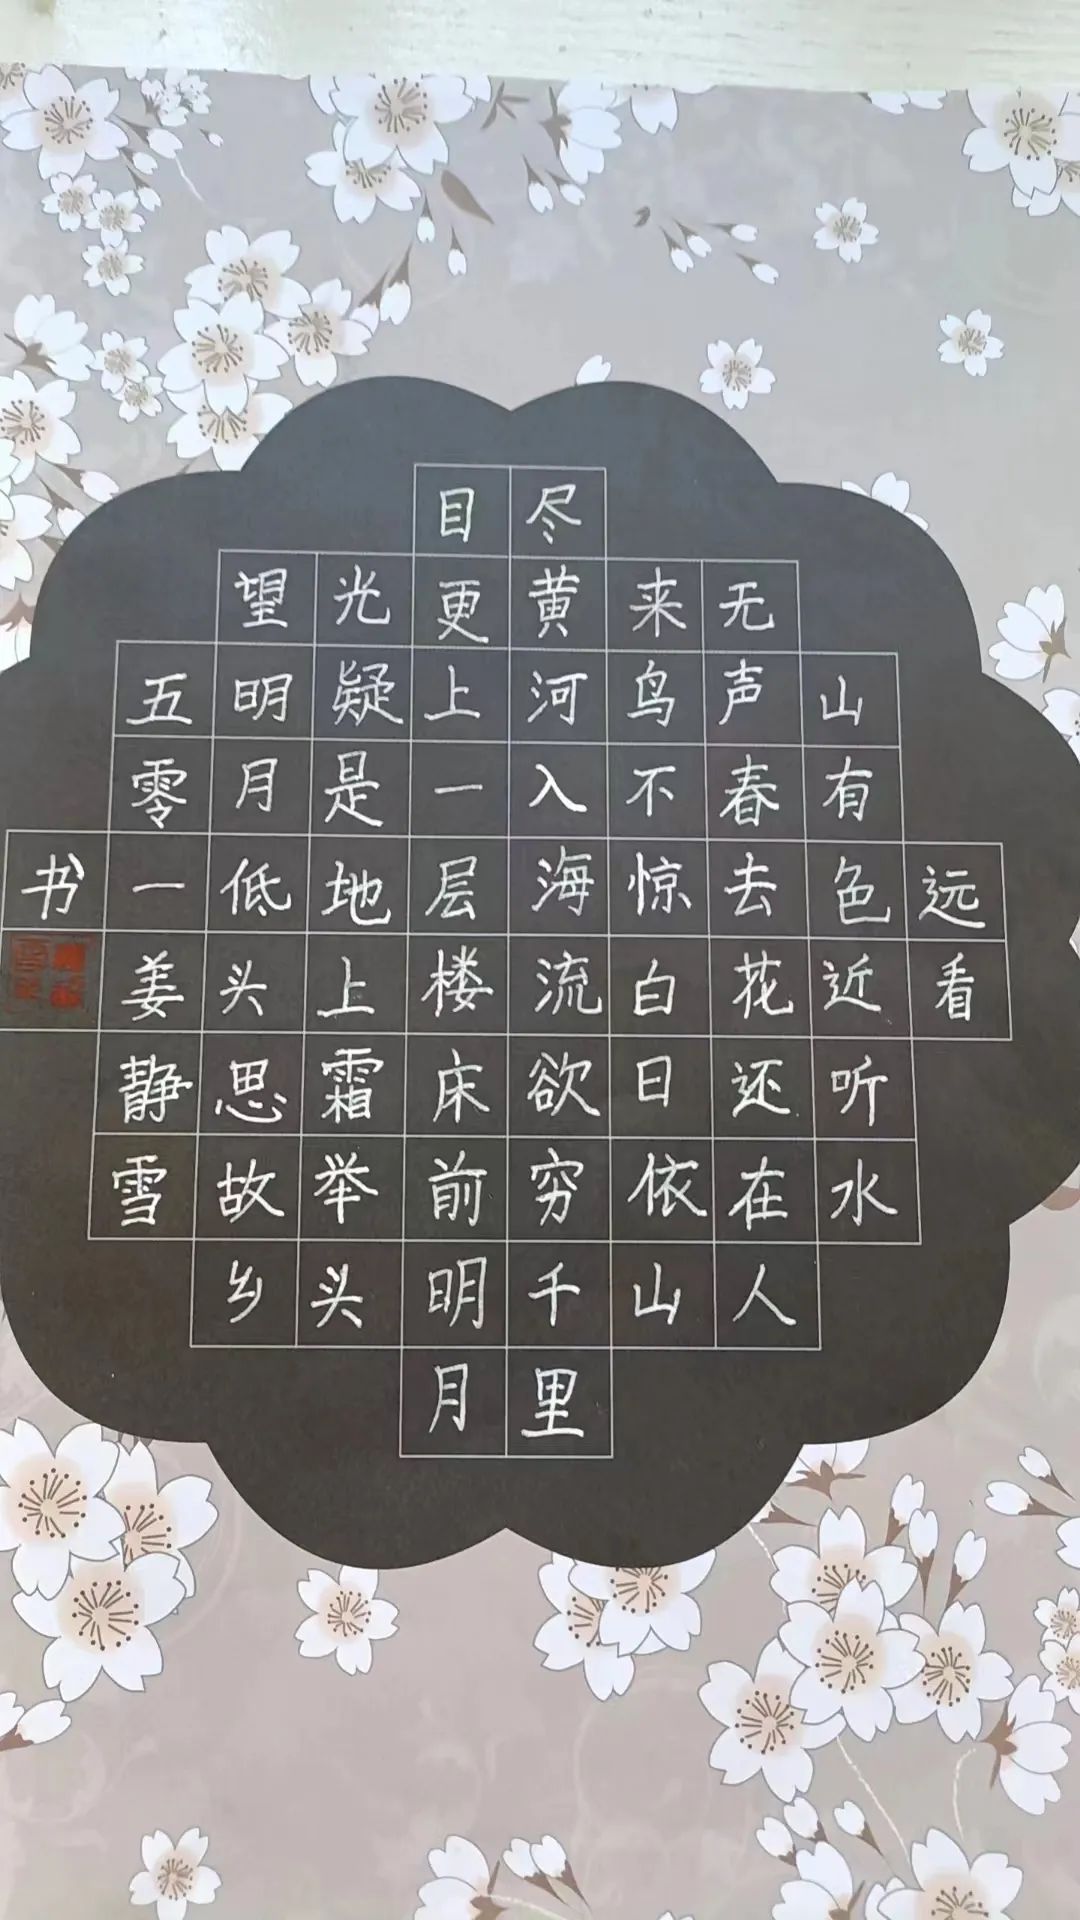 远看
山有色近听水
无声春去花还在人
来鸟不惊白日依山
尽黄河入海流欲穷千里
目更上一层楼床前明月
光疑是地上霜举头
望明月低头思故乡
五零一姜静雪
书